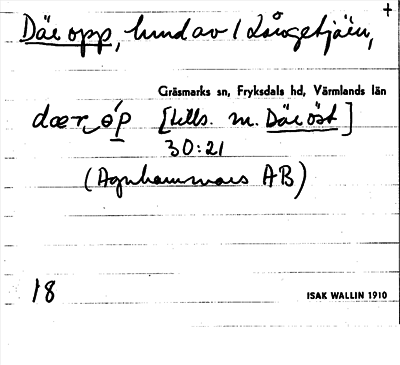 +
Däe opp, hund av / Långetjäen,
Gräsmarks sn, Fryksdals hd, Värmlands län
dær óp [tills. m. Däe öst]
30:21
(Agnhammars AB)
18
ISAK WALLIN 1910